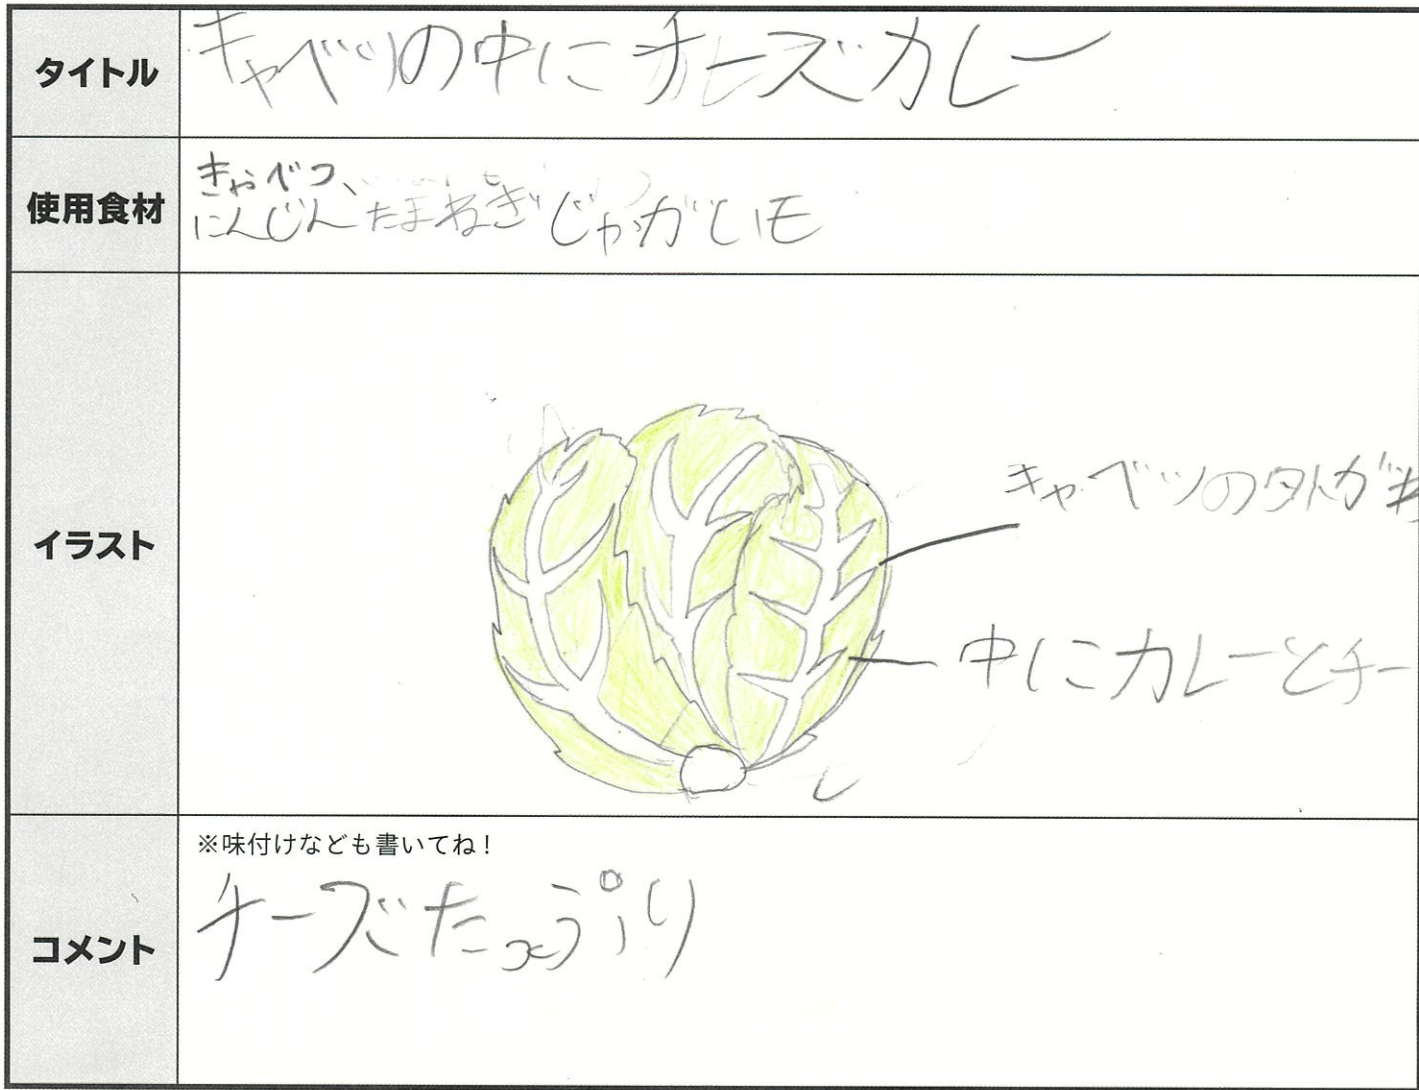 タイトル
キャベツの中にチーズカレー
使用食材
きゃべつ、
にんじん たまねぎ じゃがいモ
イラスト
キャベツの外がわ
中にカレーとチー
コメント
※味付けなども書いてね！
チーズたっぷり